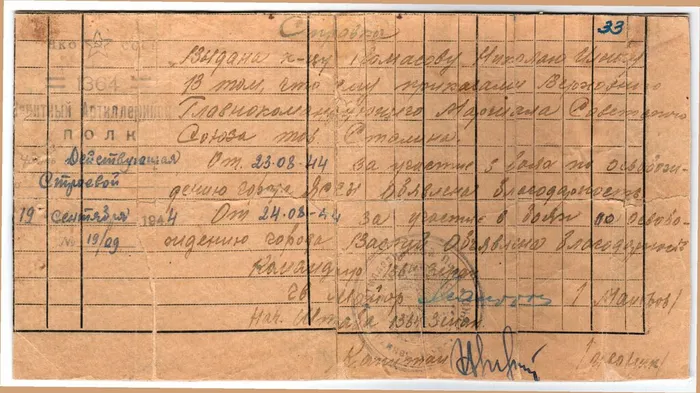 Справка
33
НКО СССР
Выдана к-цу
в том, что ему приказами Верховного
= 1364 =
Главнокомандующего Маршала Советского
Зенитный Артиллерийский
ПОЛК
Союза тов. Сталина.
Действующая
От 23-08-44 за участие в боях по освобож-
Строевой
дению города Яссы объявлена благодарность
19 сентября 1944
От 24-08-44 за участие в боях по освобо-
№ 19/09
ждению города Васлуй объявлена благодарность
Командир 1364 зенап
Гв Майор
Нач. Штаба 1364 зенап
Капитан